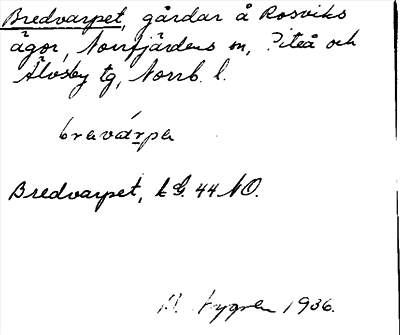 Bredvarpet, gårdar å Rosviks
ägor, Norrfjärdens sn, Piteå och
Älvsby tg, Norrb. l.
bravárpa
Bredvarpet, k G. 44 NO.
Nygren 1936.